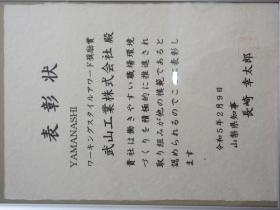 表彰状
YAMANASHI
ワーキングスタイルアワード奨励賞
武山工業株式会社 殿
貴社は働きやすい職場環境
づくりを積極的に推進され
取り組みが他の模範であると
認められるのでここに表彰し
ます
令和5年2月9日
山梨県知事
長崎 幸太郎